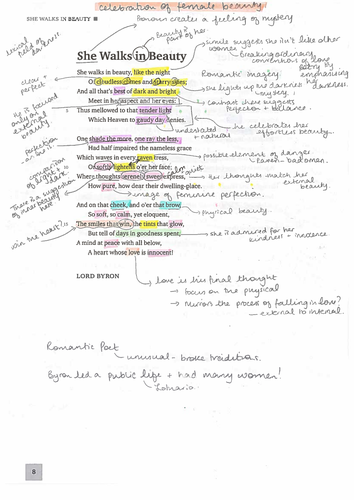 celebration of female beauty.
SHE WALKS IN BEAUTY
Pronoun creates a feeling of mystery
Beauty is
part of her
lexical
field of
darkness
simile suggests she isn't like other
women
She Walks in Beauty
Breaking ordinary
conventions of love
poetry
She walks in beauty, like the night
Of cloudless climes and starry skies;
And all that's best of dark and bright
Meet in her aspect and her eyes:
Thus mellowed to that tender light
Which Heaven to gaudy day denies.
clear
perfect
Romantic imagery
emphasising
her
she lights up the darkness
mystery
contrast there suggests
perfection + balance
darkness.
external
beauty
understated
+ natural
he celebrates her
effortless beauty.
One shade the more, one ray the less,
Had half impaired the nameless grace
Which waves in every raven tress,
Or softly lightens o'er her face;
Where thoughts serenely sweet express,
How pure, how dear their dwelling-place.
perfection
possible element of danger
Raven - bad omen.
calm
quiet
her thoughts match her
external
beauty.
There is a suggestion
of inner beauty
here
image of feminine perfection.
And on that cheek, and o'er that brow,
So soft, so calm, yet eloquent,
The smiles that win, the tints that glow,
But tell of days in goodness spent,
A mind at peace with all below,
A heart whose love is innocent!
physical beauty
win the heart?
she is admired for her
kindness + innocence
LORD BYRON
love is his final thought
- Focus on the physical
- Mirrors the process of falling in love?
- external to internal.
Romantic Poet
unusual - broke traditions.
Byron led a public life + had many women!
Lothario
8